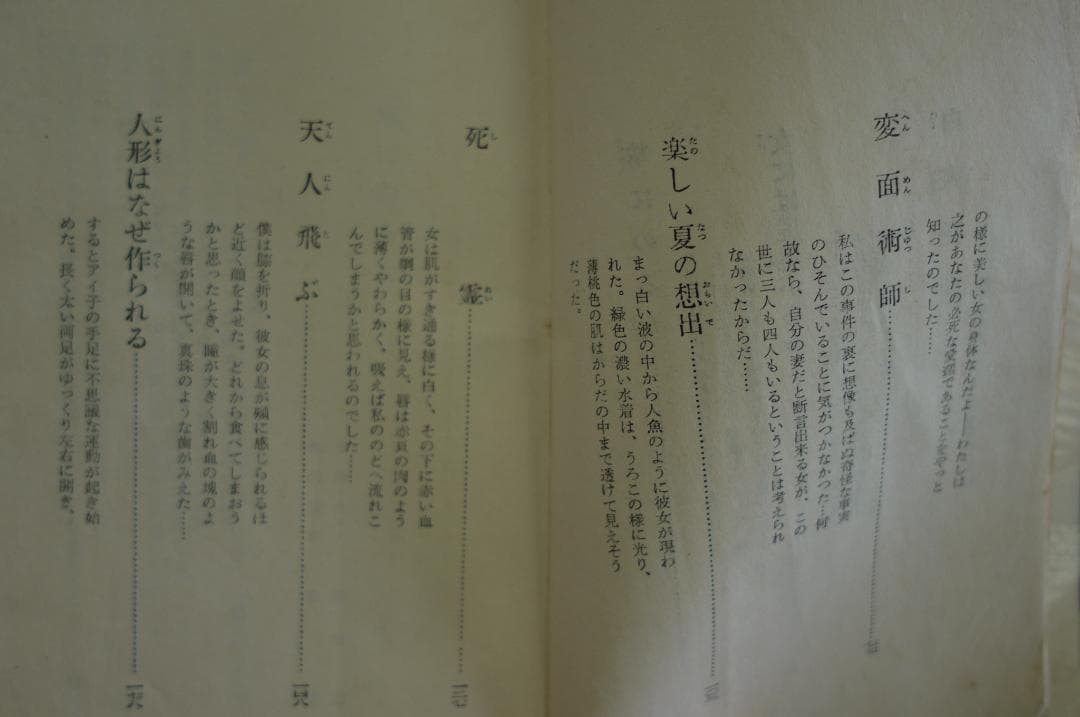 の様に美しい女の身体なんだよ――わたしは
之があなたの必死な愛撫であることをやっと
知ったのでした……
変面術師
へんめんじゅつし
私はこの事件の裏に想像も及ばぬ奇怪な事実
のひそんでいることに気がつかなかつた…何
故なら、自分の妻だと断言出来る女が、この
世に三人も四人もいるということは考えられ
なかったからだ……
楽しい夏の想出
たのなつおもいで
まっ白い波の中から人魚のように彼女が現わ
れた。緑色の濃い水着は、うろこの様に光り、
薄桃色の肌はからだの中まで透けて見えそう
だった。
死霊
しれい
女は肌がすき通る様に白く、その下に赤い血
管が網の目の様に見え、唇は赤貝の肉のよう
に薄くやわらかく、吸えば私ののどへ流れこ
んでしまうかと思われるのでした……
天人飛ぶ
てんにんと
僕は膝を折り、彼女の息が頬に感じられるほ
ど近く顔をよせた。どれから食べてしまおう
かと思ったとき、瞳が大きく割れ血の塊のよ
うな唇が開いて、真珠のような歯がみえた……
人形はなぜ作られる
にんぎょうつく
するとアイ子の手足に不思議な運動が起き始
めた。長く太い両足がゆっくり左右に開き、